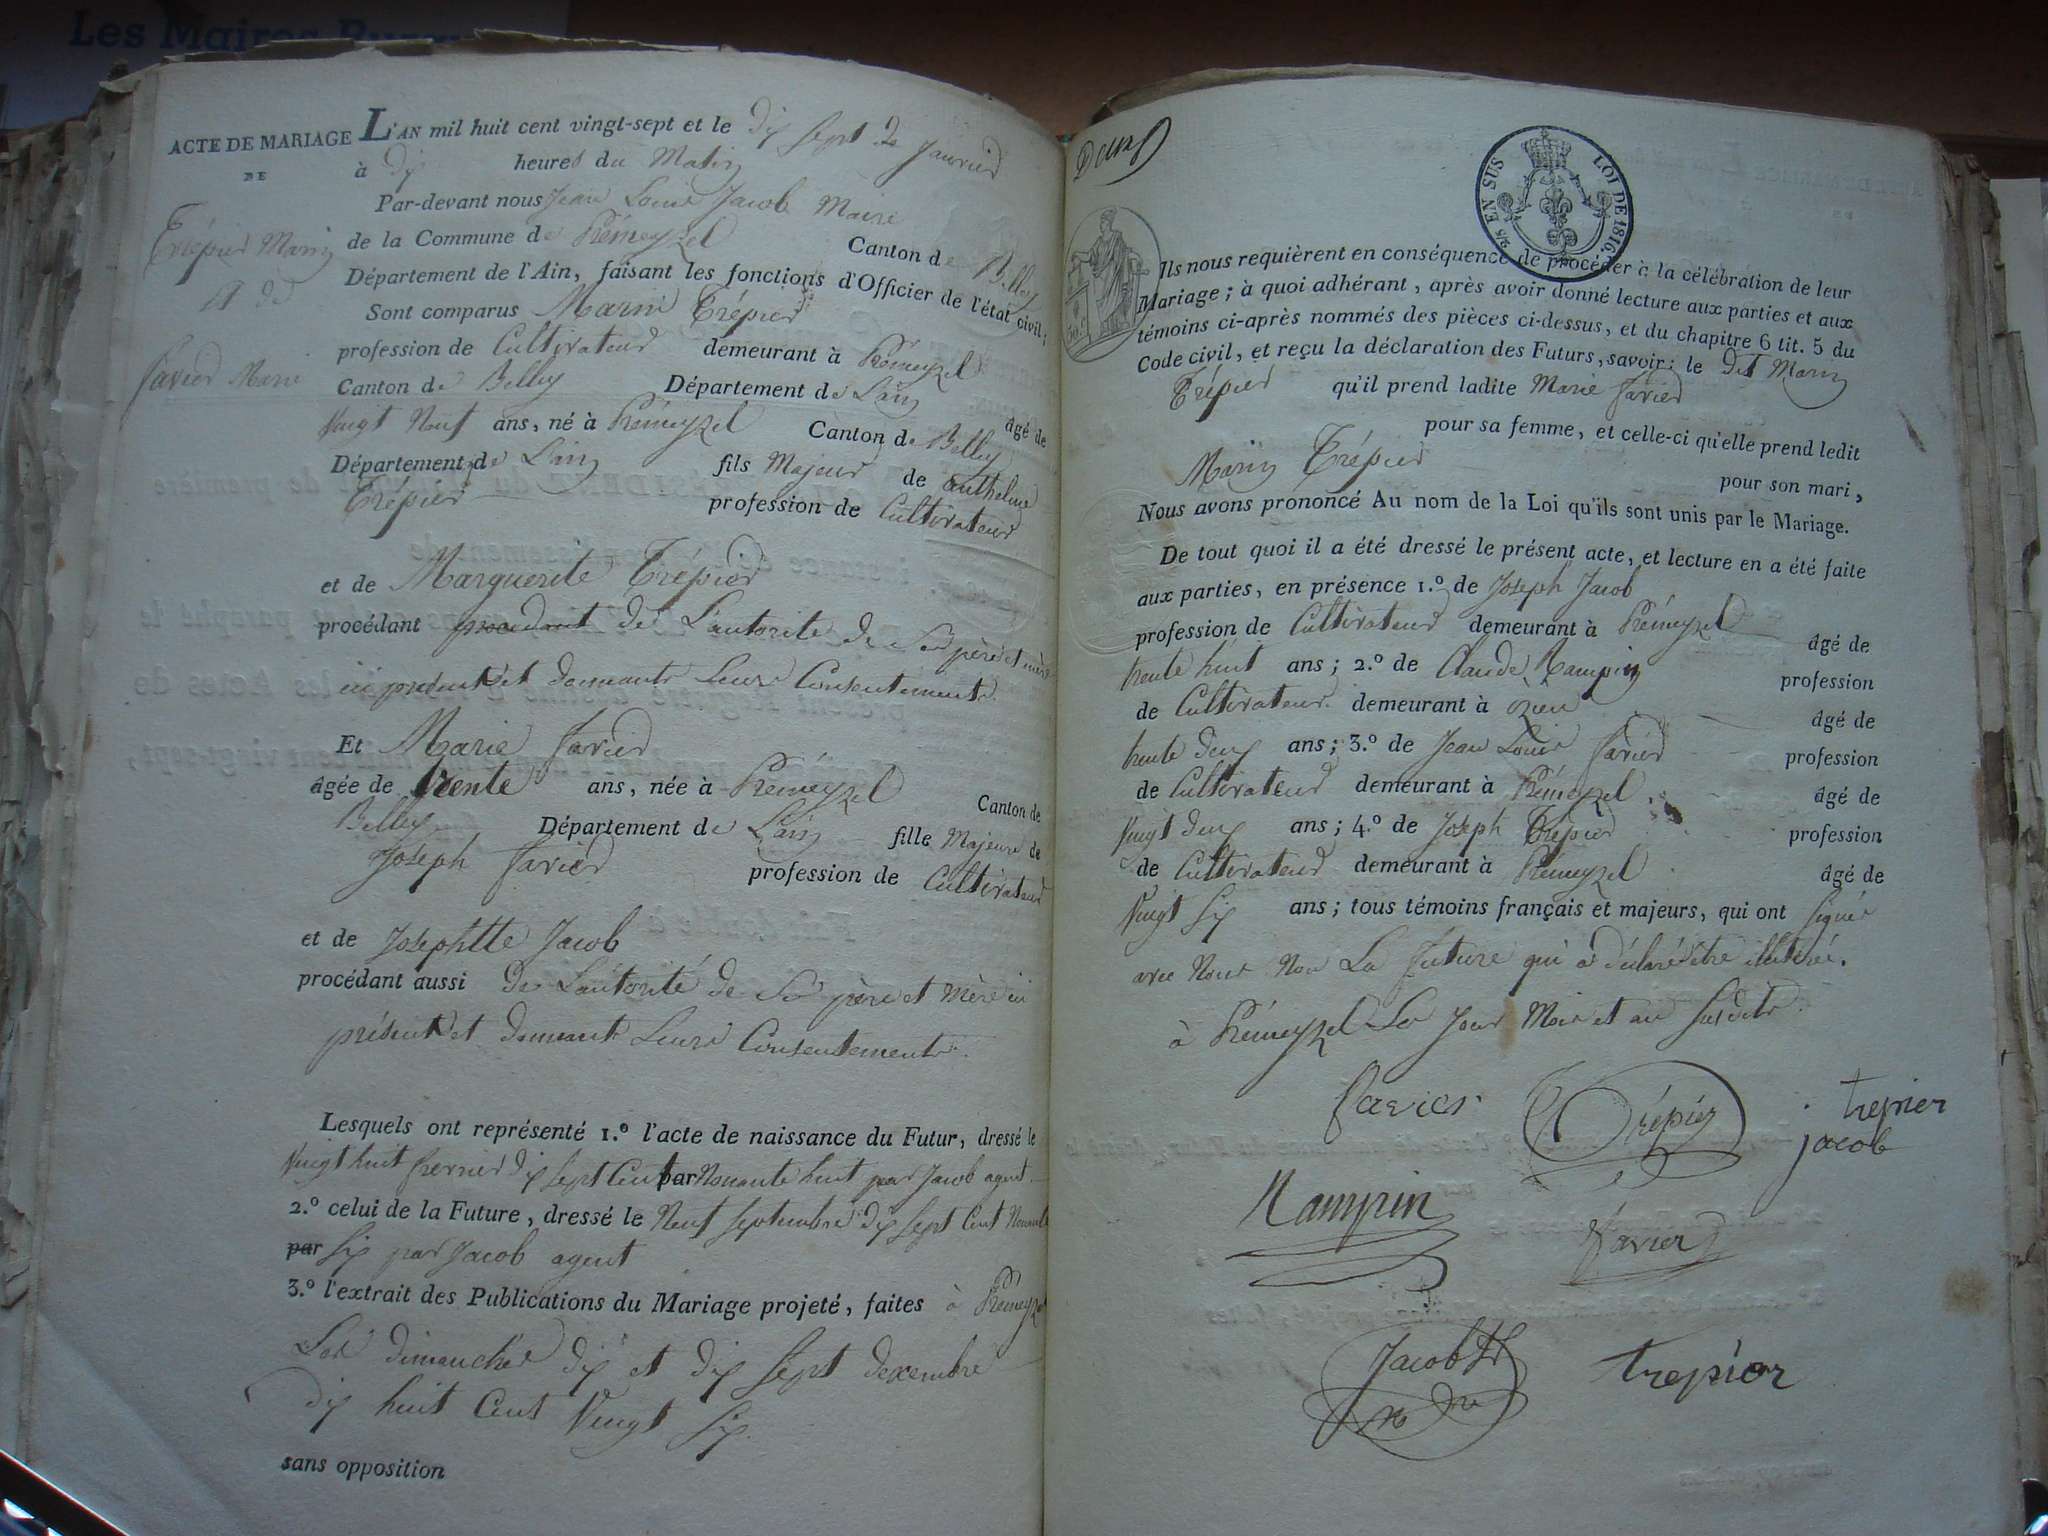 Les Maires Rura
ACTE DE MARIAGE
DE
Trépier Marin
Et de
favier Marie
L'AN mil huit cent vingt-sept et le dix sept de Janvier
à dix heures du Matin
Par-devant nous Jean Louis Jacob Maire
de la Commune de Prémeyzel Canton de Belley
Département de l'Ain, faisant les fonctions d'Officier de l'état civil;
Sont comparus Marin Trépier
profession de Cultivateur demeurant à Prémeyzel
Canton de Belley Département de L'ain âgé de
Vingt Neuf ans, né à Prémeyzel Canton de Belley
Département de L'ain fils Majeur de anthelme
Trépier profession de Cultivateur
et de Marguerite Trépier
procédant procedant de L'autorité de Ses père et mère
ici présents et donnants Leurs Consentements
Et Marie favier
âgée de trente ans, née à Prémeyzel Canton de
Belley Département de L'ain fille Majeure de
Joseph favier profession de Cultivateur
et de Josephtte Jacob
procédant aussi de L'autorité de Ses père et Mère ici
présents et donnants Leurs Consentements.
Lesquels ont représenté 1.º l'acte de naissance du Futur, dressé le
Vingt huit dix sept Cent par Nonante huit par Jacob agent
2.º celui de la Future, dressé le Neuf Septembre dix Sept Cent Nonante
par Six par Jacob agent
3.º l'extrait des Publications du Mariage projeté, faites à Prémeyzel
Les dimanches dix et dix Sept decembre
dix huit Cent Vingt Six.
sans opposition
Deux
2/8 EN SUS LOI DE 1816.
Ils nous requièrent en conséquence de procéder à la célébration de leur
Mariage; à quoi adhérant, après avoir donné lecture aux parties et aux
témoins ci-après nommés des pièces ci-dessus, et du chapitre 6 tit. 5 du
Code civil, et reçu la déclaration des Futurs, savoir: le dit Marin
Trépier qu'il prend ladite Marie favier
pour sa femme, et celle-ci qu'elle prend ledit
Marin Trépier pour son mari,
Nous avons prononcé Au nom de la Loi qu'ils sont unis par le Mariage.
De tout quoi il a été dressé le présent acte, et lecture en a été faite
aux parties, en présence 1.º de Joseph Jacob
profession de Cultivateur demeurant à Prémeyzel âgé de
trente huit ans; 2.º de Claude Rampin profession
de Cultivateur demeurant à âgé de
trente deux ans; 3.º de Jean Louis favier profession
de Cultivateur demeurant à Prémeyzel âgé de
Vingt deux ans; 4.º de Joseph Trépier profession
de Cultivateur demeurant à Prémeyzel âgé de
Vingt Six ans; tous témoins français et majeurs, qui ont signés
avec Nous Non La future qui a déclaré être illitéré.
à Prémeyzel Les Jour Mois et an Susdits.
favier Trépier trepier
jacob
Rampin favier
Jacob trepier